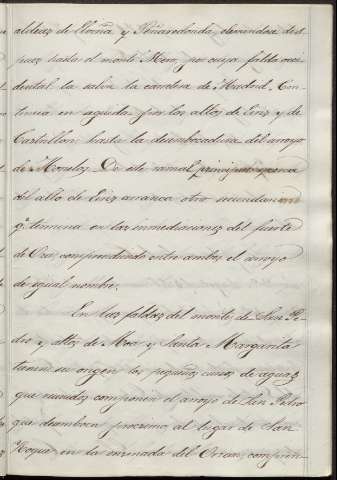 aldeas de Elviña y Peñaredonda, elevandose des-
pues hasta el monte Mero, por cuya falda occi-
dental la salva la carretera de Madrid. Con-
tinua en aguida por los altos de Eiris y de
Castrillon hasta la desembocadura del arroyo
de Monelos. De este ramal principal y cerca
del alto de Eiris arranca otro secundario
qe. termina en las inmediaciones del puente
de Oza, comprendiendo entre ambos el arroyo
de igual nombre.
En las faldas del monte de San Pe-
dro y altos de Mea y Santa Margarita
tienen su origen los pequeños cursos de agua
que reunidos componen el arroyo de San Pedro
que desemboca proximo al lugar de San
Roque en la ensenada del Orzan, compren-